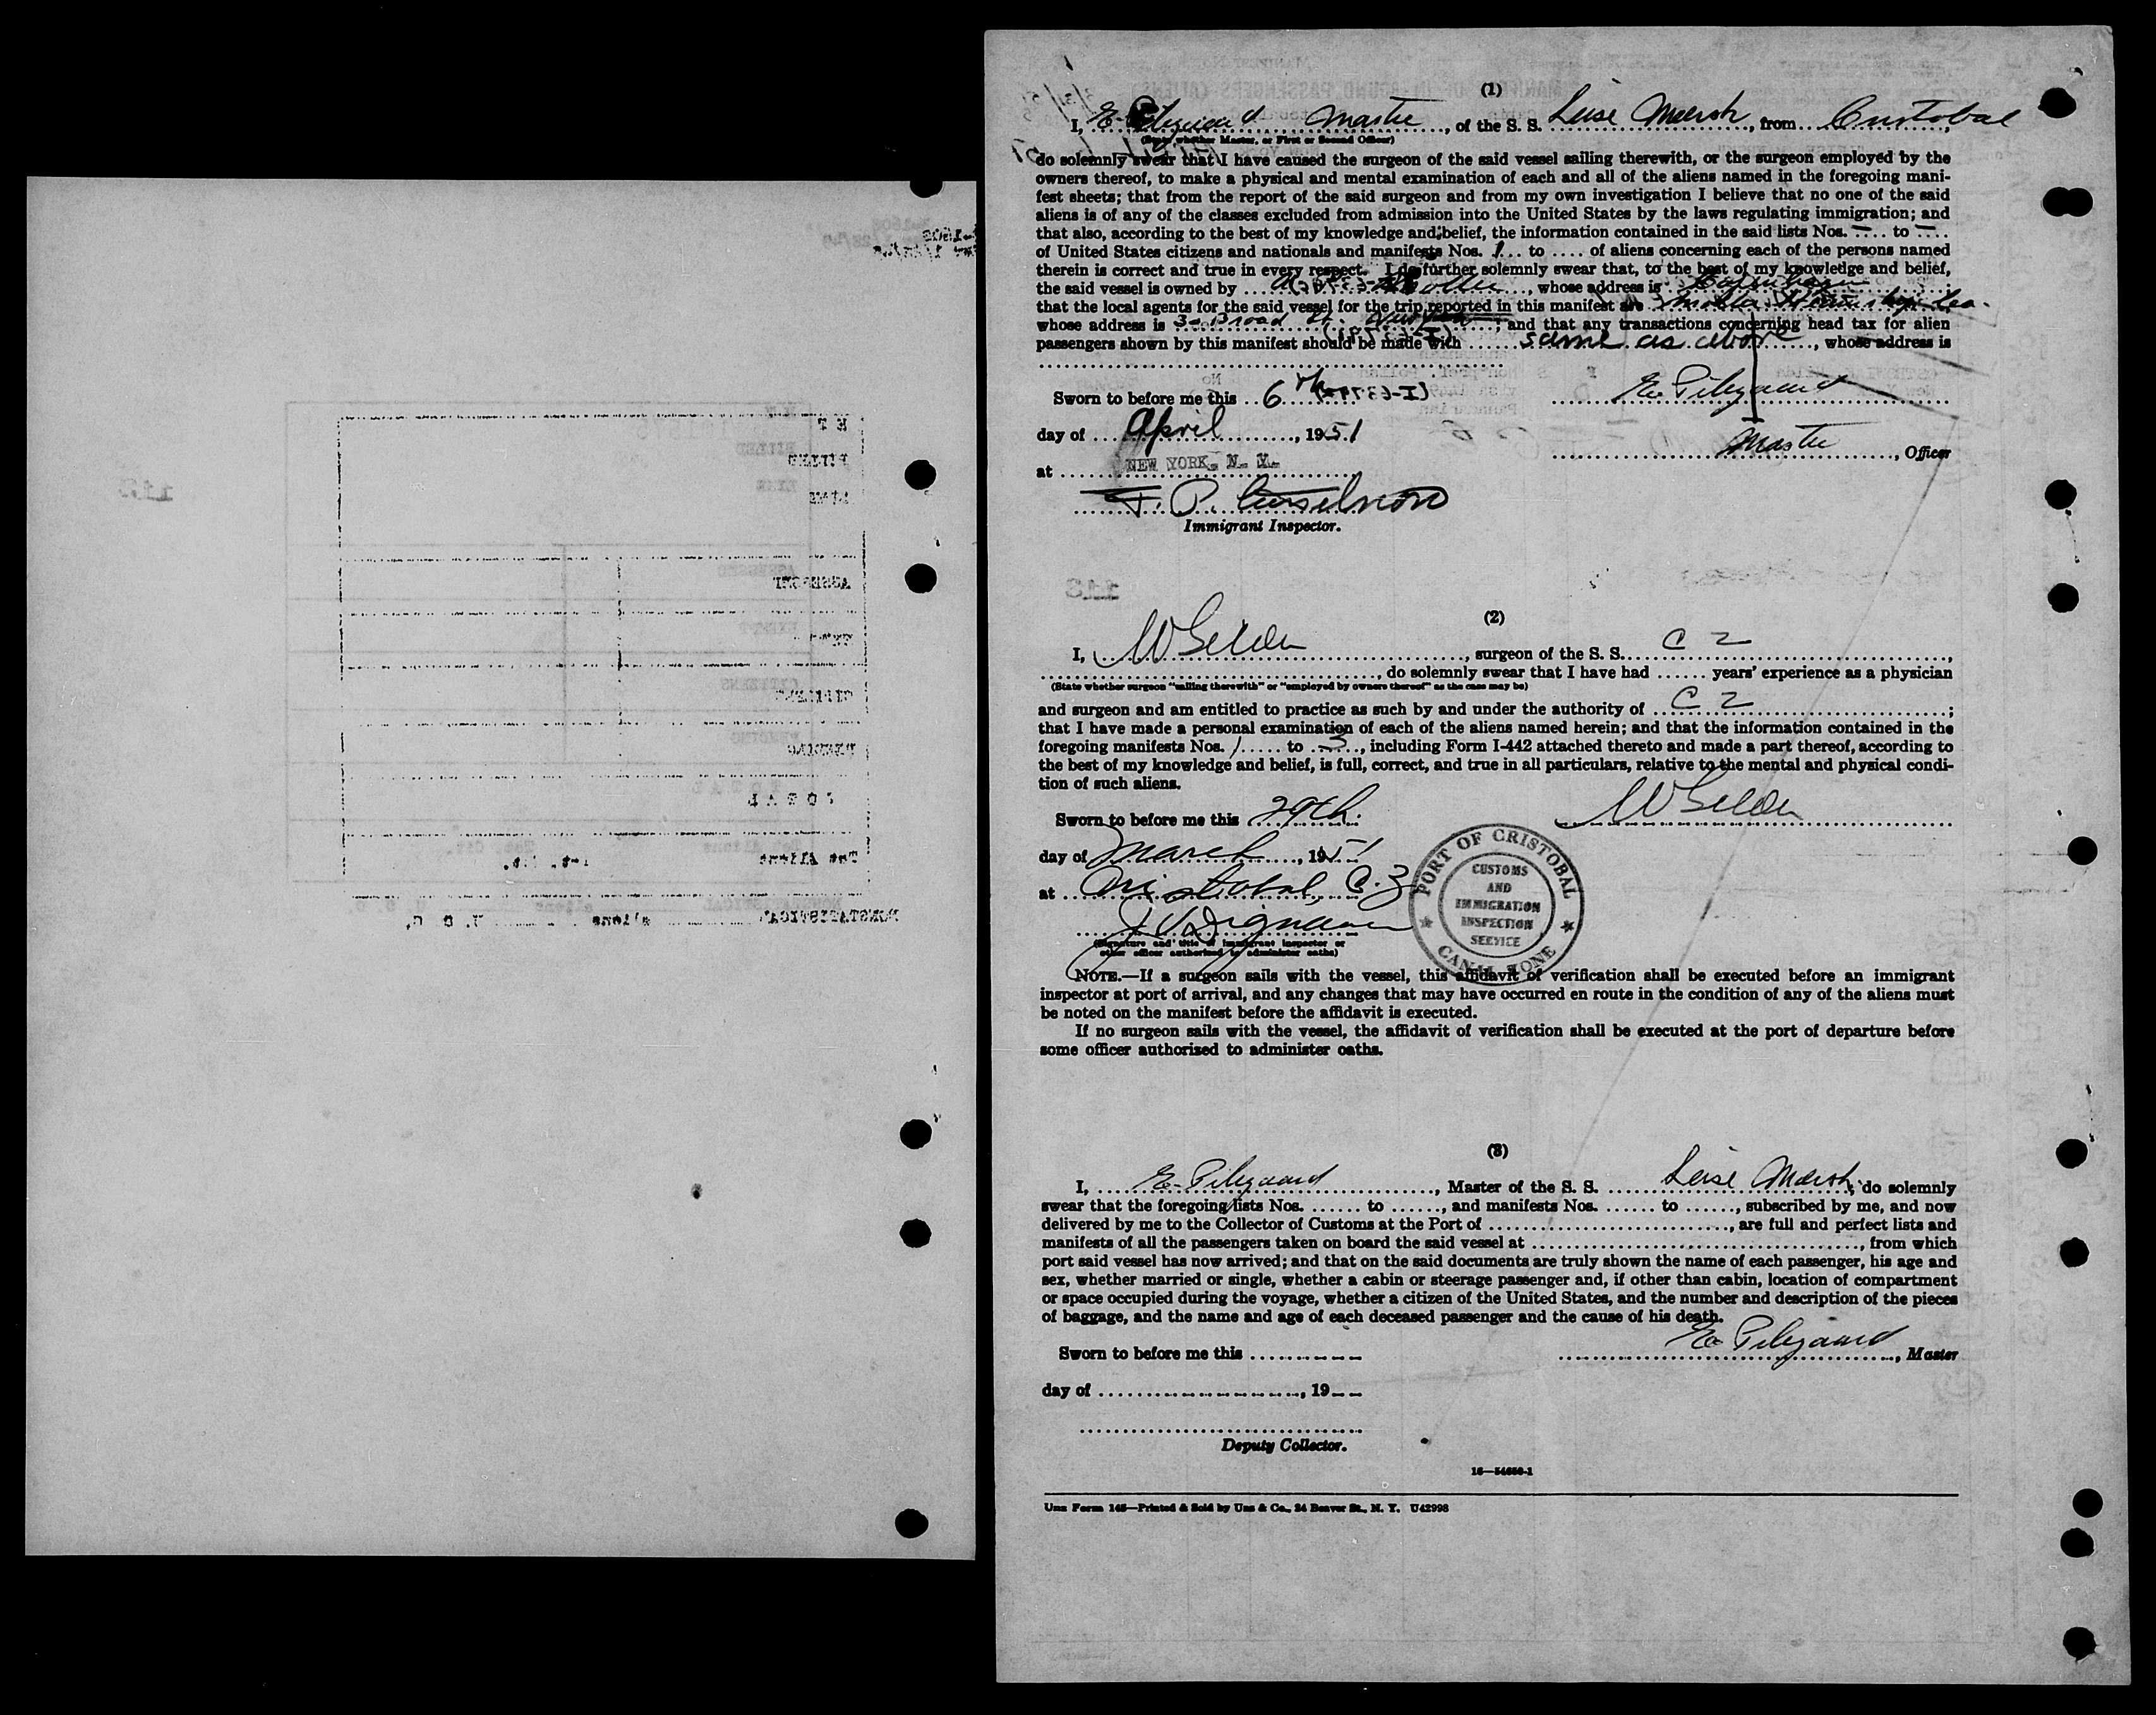 (1)
I, E. Pilegaard Master, of the S. S. Leise Mærsk, from Cristobal,
(State whether Master, or First or Second Officer)
do solemnly swear that I have caused the surgeon of the said vessel sailing therewith, or the surgeon employed by the
owners thereof, to make a physical and mental examination of each and all of the aliens named in the foregoing mani-
fest sheets; that from the report of the said surgeon and from my own investigation I believe that no one of the said
aliens is of any of the classes excluded from admission into the United States by the laws regulating immigration; and
that also, according to the best of my knowledge and belief, the information contained in the said lists Nos. — to —
of United States citizens and nationals and manifests Nos. 1 to .... of aliens concerning each of the persons named
therein is correct and true in every respect. I do further solemnly swear that, to the best of my knowledge and belief,
the said vessel is owned by A. P. Moller, whose address is
that the local agents for the said vessel for the trip reported in this manifest are Moller Steamship Co.
whose address is 30 Broad St. New York; and that any transactions concerning head tax for alien
passengers shown by this manifest should be made with same as above, whose address is
Sworn to before me this 6th E. Pilegaard
day of April, 1951
Master, Officer
at NEW YORK, N. Y.
Immigrant Inspector.
(2)
I, W Gelden, surgeon of the S. S. C Z,
, do solemnly swear that I have had ...... years' experience as a physician
(State whether surgeon "sailing therewith" or "employed by owners thereof" as the case may be)
and surgeon and am entitled to practice as such by and under the authority of C Z;
that I have made a personal examination of each of the aliens named herein; and that the information contained in the
foregoing manifests Nos. 1 to 3, including Form I-442 attached thereto and made a part thereof, according to
the best of my knowledge and belief, is full, correct, and true in all particulars, relative to the mental and physical condi-
tion of such aliens.
Sworn to before me this 29th W Gelden
day of March, 1951
at Cristobal, C. Z.
PORT OF CRISTOBAL
CUSTOMS
AND
IMMIGRATION
INSPECTION
SERVICE
CANAL ZONE
(Signature and title of immigrant inspector or
other officer authorized to administer oaths)
NOTE.—If a surgeon sails with the vessel, this affidavit of verification shall be executed before an immigrant
inspector at port of arrival, and any changes that may have occurred en route in the condition of any of the aliens must
be noted on the manifest before the affidavit is executed.
If no surgeon sails with the vessel, the affidavit of verification shall be executed at the port of departure before
some officer authorized to administer oaths.
(3)
I, E. Pilegaard, Master of the S. S. Leise Mærsk, do solemnly
swear that the foregoing lists Nos. ...... to ......, and manifests Nos. ...... to ......, subscribed by me, and now
delivered by me to the Collector of Customs at the Port of ......, are full and perfect lists and
manifests of all the passengers taken on board the said vessel at ......, from which
port said vessel has now arrived; and that on the said documents are truly shown the name of each passenger, his age and
sex, whether married or single, whether a cabin or steerage passenger and, if other than cabin, location of compartment
or space occupied during the voyage, whether a citizen of the United States, and the number and description of the pieces
of baggage, and the name and age of each deceased passenger and the cause of his death.
Sworn to before me this ...... E. Pilegaard, Master
day of ......, 19
Deputy Collector.
16—54650-1
Unz Form 145—Printed & Sold by Unz & Co., 24 Beaver St., N. Y. U42998